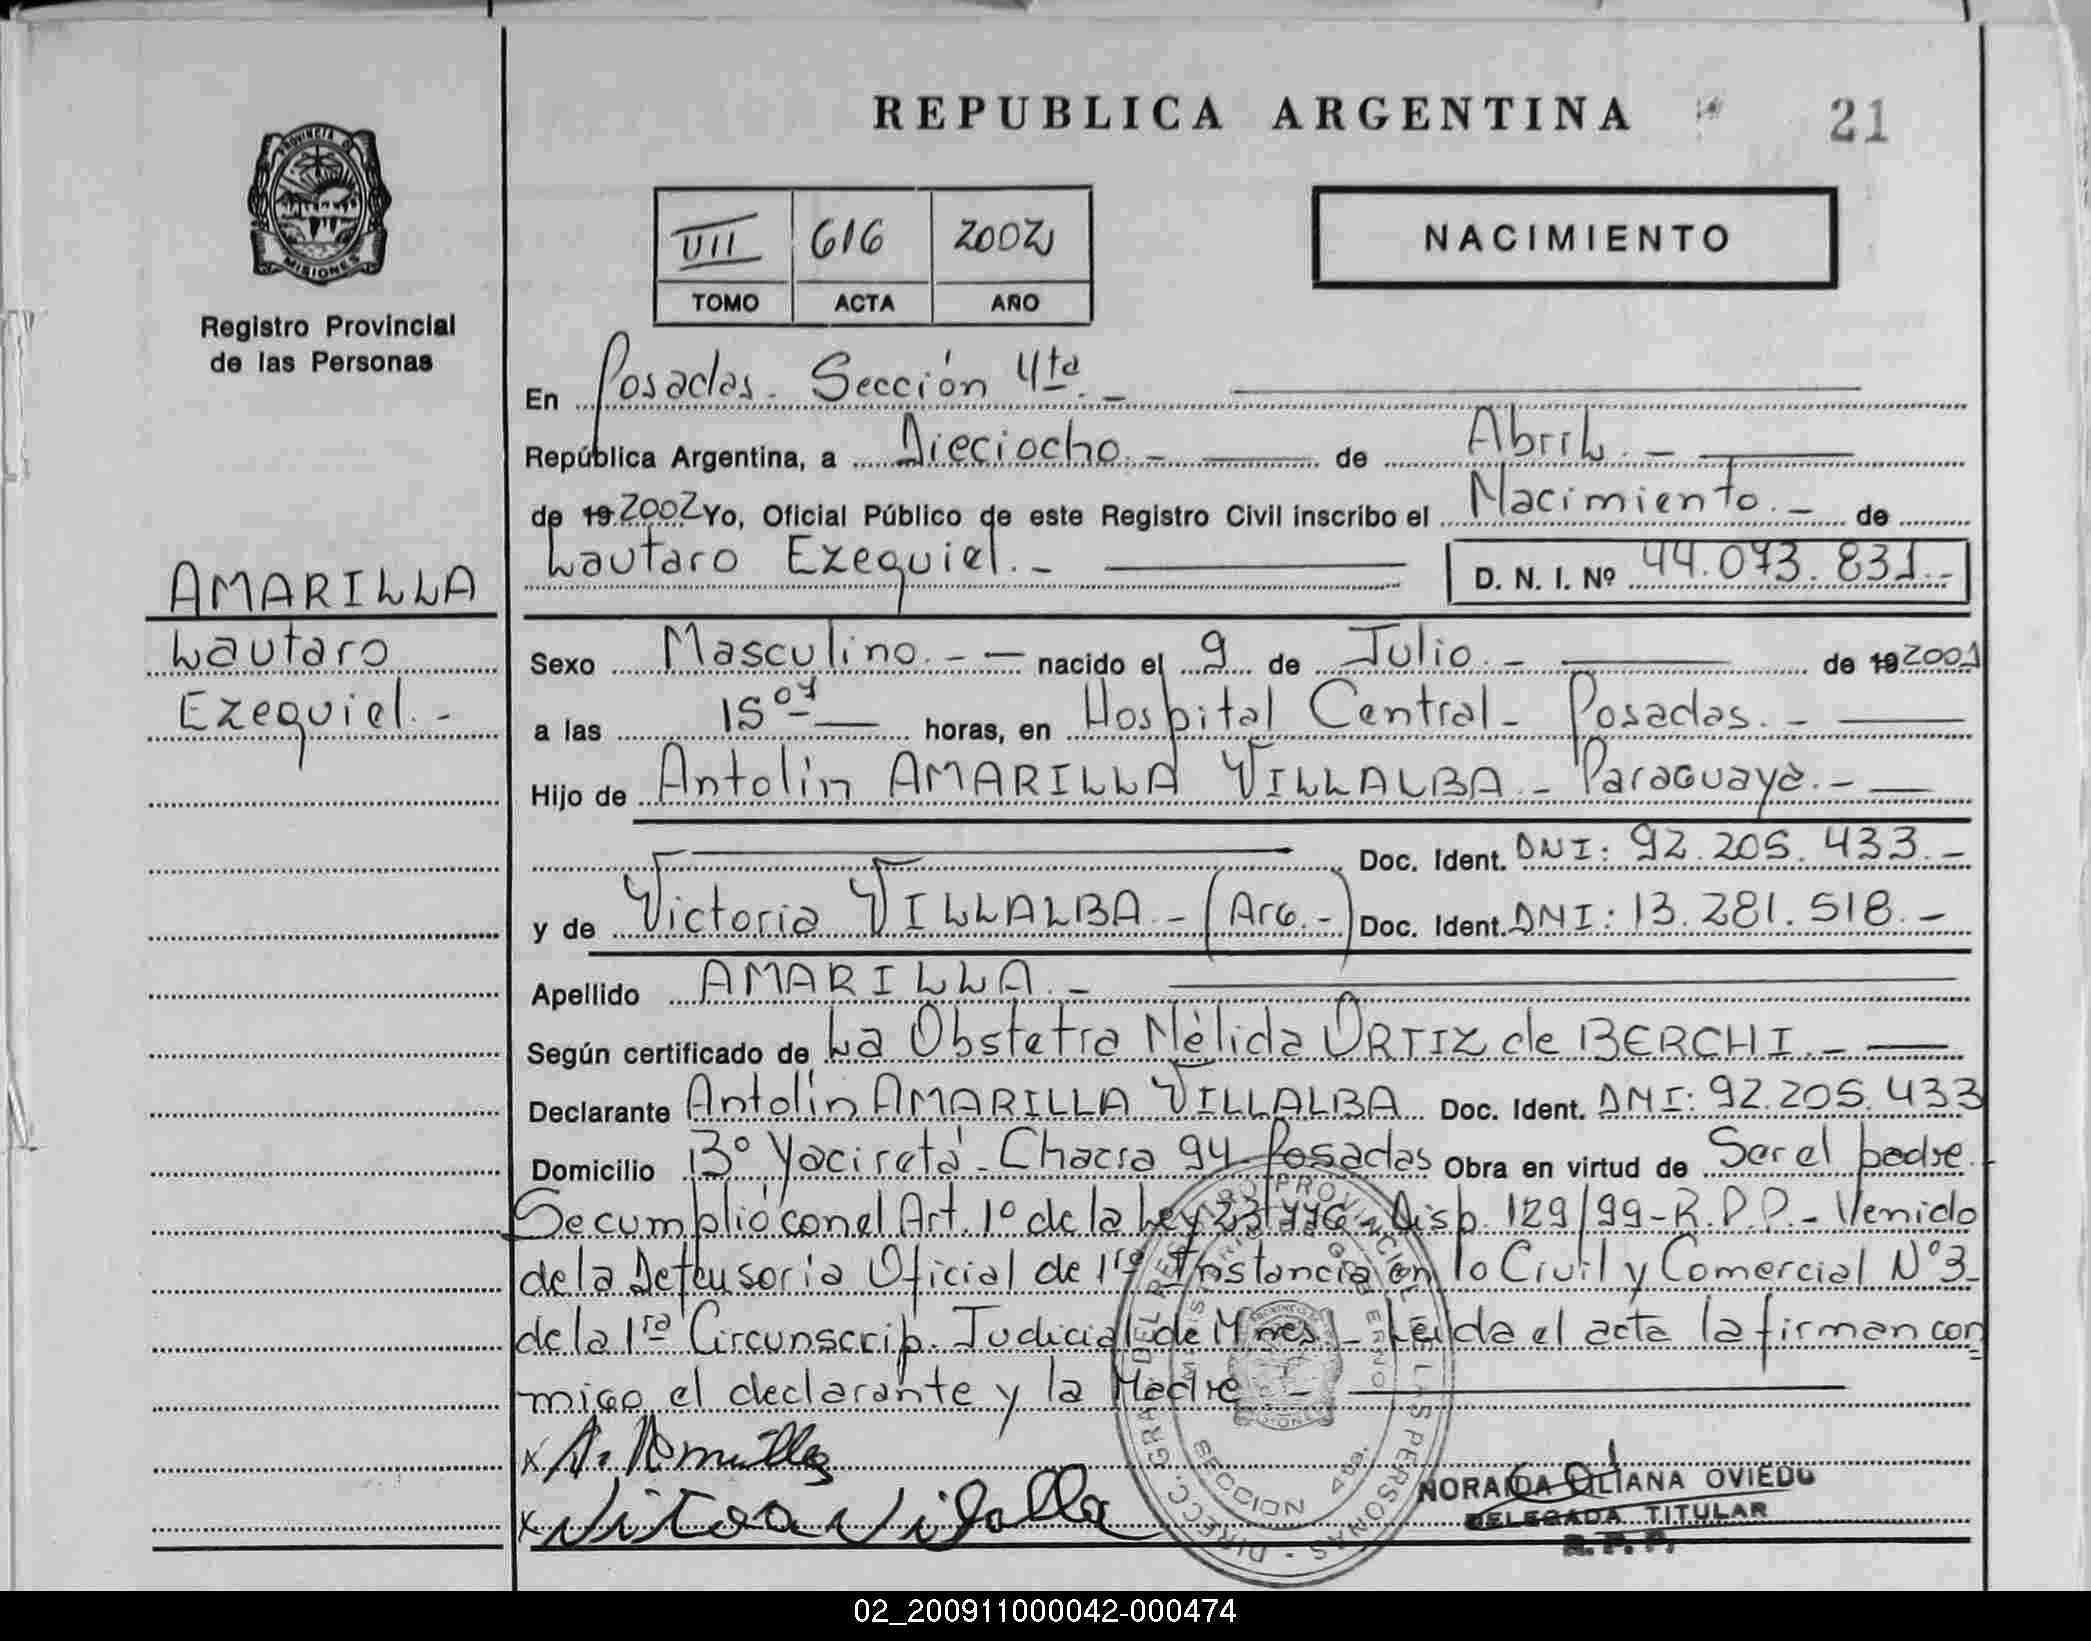 REPUBLICA ARGENTINA 21
PROVINCIA DE MISIONES
Registro Provincial
de las Personas
VII 616 2002
TOMO ACTA AÑO
NACIMIENTO
En Posadas. Sección 4ta. -
República Argentina, a Dieciocho. - de Abril. -
de 19 2002 Yo, Oficial Público de este Registro Civil inscribo el Nacimiento. - de
Lautaro Ezequiel. - D. N. I. Nº 44.073.831.-
AMARILLA
Lautaro
Ezequiel. -
Sexo Masculino. - - nacido el 9 de Julio. - de 19 2001
a las 15 07 horas, en Hospital Central - Posadas. -
Hijo de Antolín AMARILLA VILLALBA - Paraguaya. -
Doc. Ident. DNI: 92.205.433. -
y de Victoria VILLALBA. - (Arg. -) Doc. Ident. DNI: 13.281.518. -
Apellido AMARILLA. -
Según certificado de La Obstetra Nélida ORTIZ de BERCHI. -
Declarante Antolín AMARILLA VILLALBA Doc. Ident. DNI: 92.205.433
Domicilio Bº Yaciretá - Chacra 94 Posadas Obra en virtud de Ser el padre.
Se cumplió con el Art. 1º de la Ley 23.776 - Disp. 129/99 - R.P.P. - Venido
de la Defensoria Oficial de 1ra Instancia en lo Civil y Comercial Nº 3 -
de la 1ra Circunscrip. Judicial de Mnes. - Leída el acta la firman con
migo el declarante y la Madre -
x A. Amarilla
x Vitoa Vilalla
DIRECC. GRAL. DEL REGISTRO PROVINCIAL DE LAS PERSONAS
MINISTERIO DE GOBIERNO
SECCION 4ta.
NORAIDA LILIANA OVIEDO
DELEGADA TITULAR
R. P. P.
02_200911000042-000474